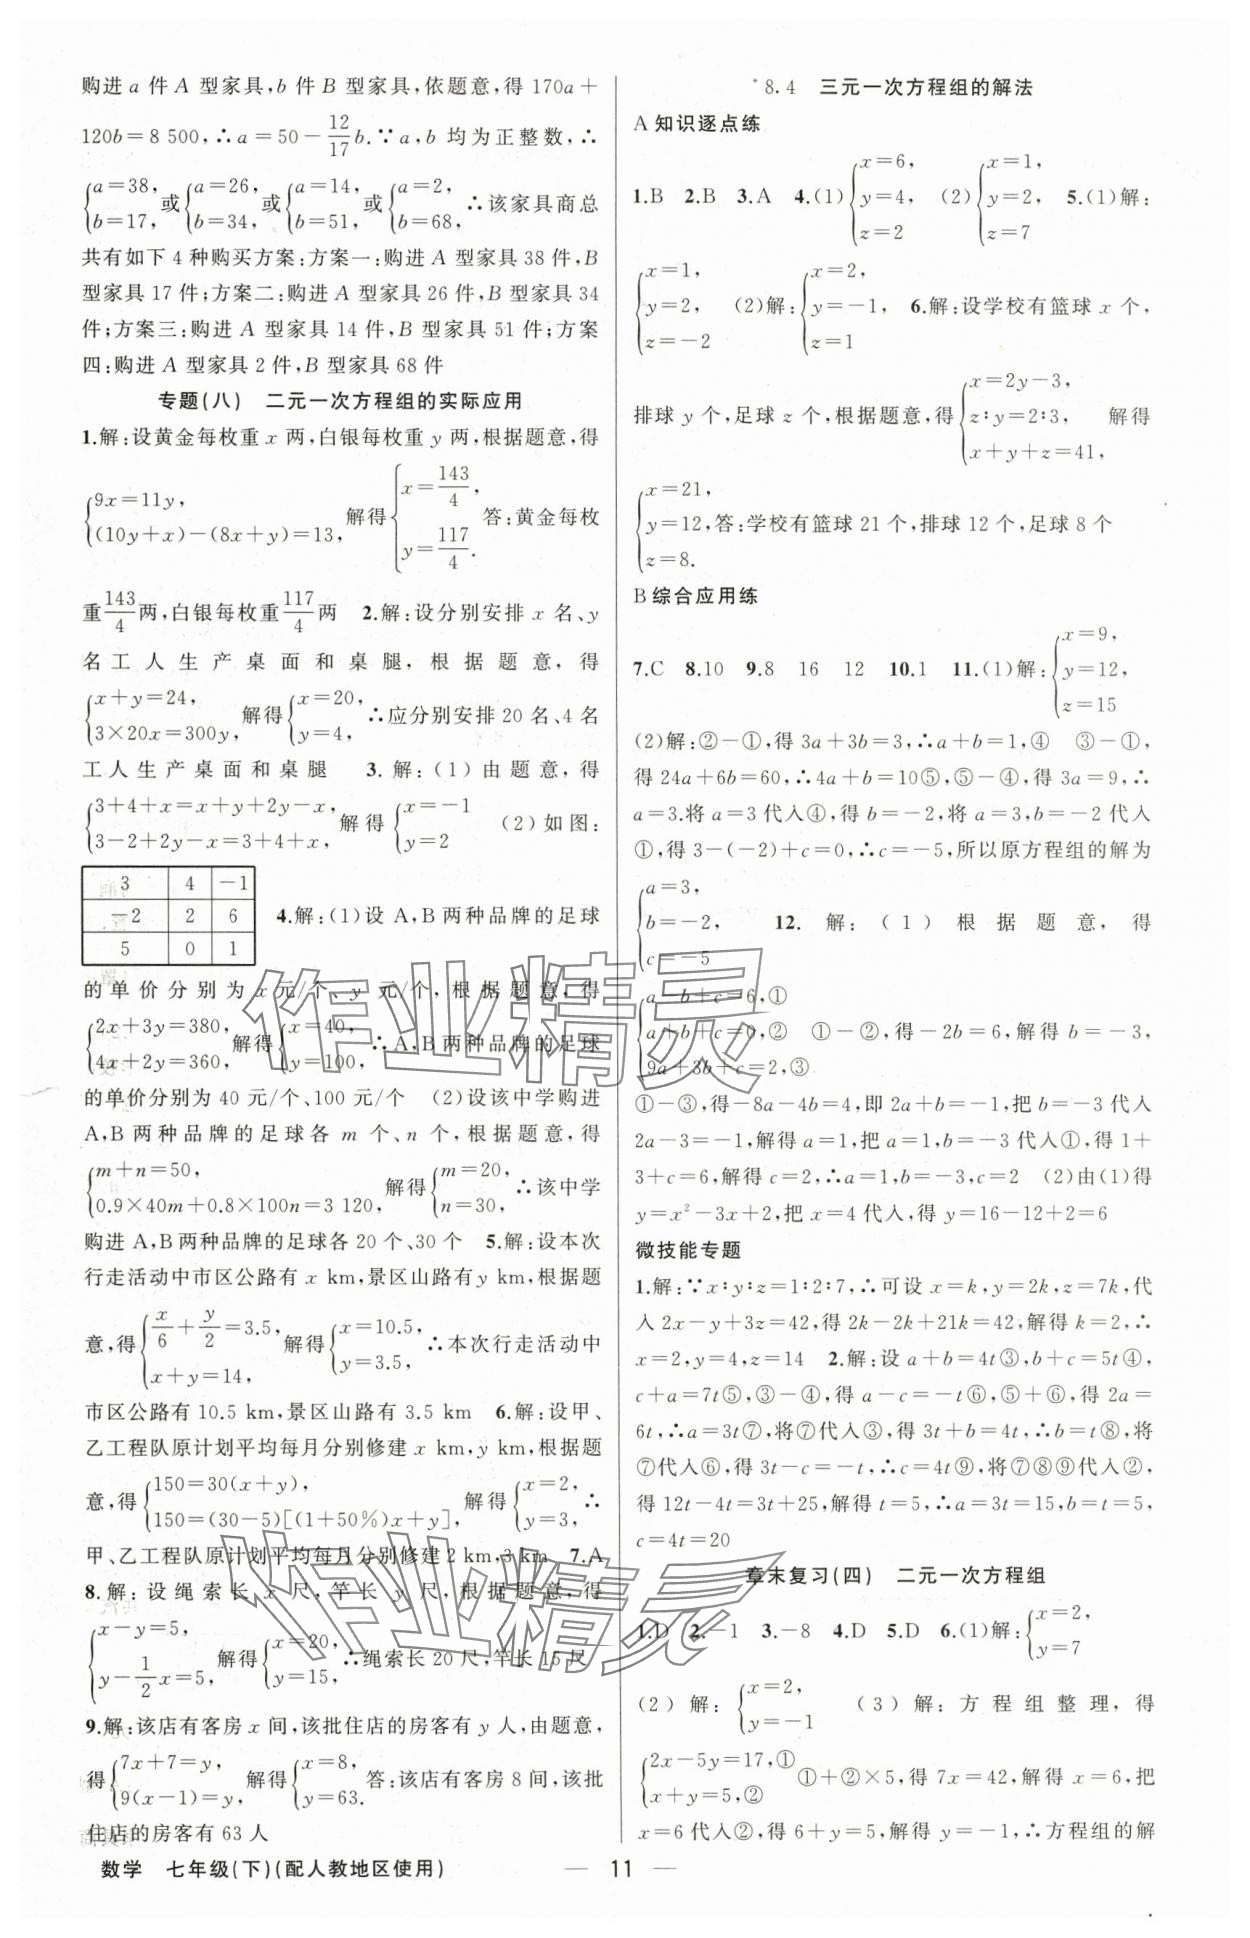 购进 a 件 A 型家具,b 件 B 型家具,依题意,得 170a＋
120b＝8 500,∴a＝50－12/17 b.∵a,b 均为正整数,∴
{a＝38, b＝17, 或 {a＝26, b＝34, 或 {a＝14, b＝51, 或 {a＝2, b＝68, ∴该家具商总
共有如下 4 种购买方案:方案一:购进 A 型家具 38 件,B
型家具 17 件;方案二:购进 A 型家具 26 件,B 型家具 34
件;方案三:购进 A 型家具 14 件,B 型家具 51 件;方案
四:购进 A 型家具 2 件,B 型家具 68 件
专题(八)　二元一次方程组的实际应用
1.解:设黄金每枚重 x 两,白银每枚重 y 两,根据题意,得
{9x＝11y, (10y＋x)－(8x＋y)＝13, 解得 {x＝143/4, y＝117/4. 答:黄金每枚
重 143/4 两,白银每枚重 117/4 两　2.解:设分别安排 x 名、y
名工人生产桌面和桌腿,根据题意,得
{x＋y＝24, 3×20x＝300y, 解得 {x＝20, y＝4, ∴应分别安排 20 名、4 名
工人生产桌面和桌腿　3.解:(1)由题意,得
{3＋4＋x＝x＋y＋2y－x, 3－2＋2y－x＝3＋4＋x, 解得 {x＝－1 y＝2　(2)如图:
3　4　－1
－2　2　6
5　0　1
4.解:(1)设 A,B 两种品牌的足球
的单价分别为 x 元/个、y 元/个,根据题意,得
{2x＋3y＝380, 4x＋2y＝360, 解得 {x＝40, y＝100, ∴A,B 两种品牌的足球
的单价分别为 40 元/个、100 元/个　(2)设该中学购进
A,B 两种品牌的足球各 m 个、n 个,根据题意,得
{m＋n＝50, 0.9×40m＋0.8×100n＝3 120, 解得 {m＝20, n＝30, ∴该中学
购进 A,B 两种品牌的足球各 20 个、30 个　5.解:设本次
行走活动中市区公路有 x km,景区山路有 y km,根据题
意,得 {x/6＋y/2＝3.5, x＋y＝14, 解得 {x＝10.5, y＝3.5, ∴本次行走活动中
市区公路有 10.5 km,景区山路有 3.5 km　6.解:设甲、
乙工程队原计划平均每月分别修建 x km,y km,根据题
意,得 {150＝30(x＋y), 150＝(30－5)[(1＋50%)x＋y], 解得 {x＝2, y＝3, ∴
甲、乙工程队原计划平均每月分别修建 2 km,3 km　7.A
8.解:设绳索长 x 尺,竿长 y 尺,根据题意,得
{x－y＝5, y－1/2 x＝5, 解得 {x＝20, y＝15, ∴绳索长 20 尺,竿长 15 尺
9.解:该店有客房 x 间,该批住店的房客有 y 人,由题意,
得 {7x＋7＝y, 9(x－1)＝y, 解得 {x＝8, y＝63. 答:该店有客房 8 间,该批
住店的房客有 63 人
8.4　三元一次方程组的解法
A 知识逐点练
1.B　2.B　3.A　4.(1) {x＝6, y＝4, z＝2　(2) {x＝1, y＝2, z＝7　5.(1)解:
{x＝1, y＝2, z＝－2　(2)解: {x＝2, y＝－1, z＝1　6.解:设学校有篮球 x 个,
排球 y 个,足球 z 个,根据题意,得 {x＝2y－3, z∶y＝2∶3, x＋y＋z＝41, 解得
{x＝21, y＝12, z＝8. 答:学校有篮球 21 个,排球 12 个,足球 8 个
B 综合应用练
7.C　8.10　9.8　16　12　10.1　11.(1)解: {x＝9, y＝12, z＝15
(2)解:②－①,得 3a＋3b＝3,∴a＋b＝1,④　③－①,
得 24a＋6b＝60,∴4a＋b＝10⑤,⑤－④,得 3a＝9,∴
a＝3.将 a＝3 代入④,得 b＝－2,将 a＝3,b＝－2 代入
①,得 3－(－2)＋c＝0,∴c＝－5,所以原方程组的解为
{a＝3, b＝－2, c＝－5　12.解:(1)根据题意,得
{a－b＋c＝6,① a＋b＋c＝0,② 9a＋3b＋c＝2,③　①－②,得－2b＝6,解得 b＝－3,
①－③,得－8a－4b＝4,即 2a＋b＝－1,把 b＝－3 代入
2a－3＝－1,解得 a＝1,把 a＝1,b＝－3 代入①,得 1＋
3＋c＝6,解得 c＝2,∴a＝1,b＝－3,c＝2　(2)由(1)得
y＝x²－3x＋2,把 x＝4 代入,得 y＝16－12＋2＝6
微技能专题
1.解:∵x∶y∶z＝1∶2∶7,∴可设 x＝k,y＝2k,z＝7k,代
入 2x－y＋3z＝42,得 2k－2k＋21k＝42,解得 k＝2,∴
x＝2,y＝4,z＝14　2.解:设 a＋b＝4t③,b＋c＝5t④,
c＋a＝7t⑤,③－④,得 a－c＝－t⑥,⑤＋⑥,得 2a＝
6t,∴a＝3t⑦,将⑦代入③,得 3t＋b＝4t,∴b＝t⑧,将
⑦代入⑥,得 3t－c＝－t,∴c＝4t⑨,将⑦⑧⑨代入②,
得 12t－4t＝3t＋25,解得 t＝5,∴a＝3t＝15,b＝t＝5,
c＝4t＝20
章末复习(四)　二元一次方程组
1.D　2.－1　3.－8　4.D　5.D　6.(1)解: {x＝2, y＝7
(2)解: {x＝2, y＝－1　(3)解:方程组整理,得
{2x－5y＝17,① x＋y＝5,②　①＋②×5,得 7x＝42,解得 x＝6,把
x＝6 代入②,得 6＋y＝5,解得 y＝－1,∴方程组的解
数学　七年级(下)(配人教地区使用)
— 11 —
作业精灵
作业精灵